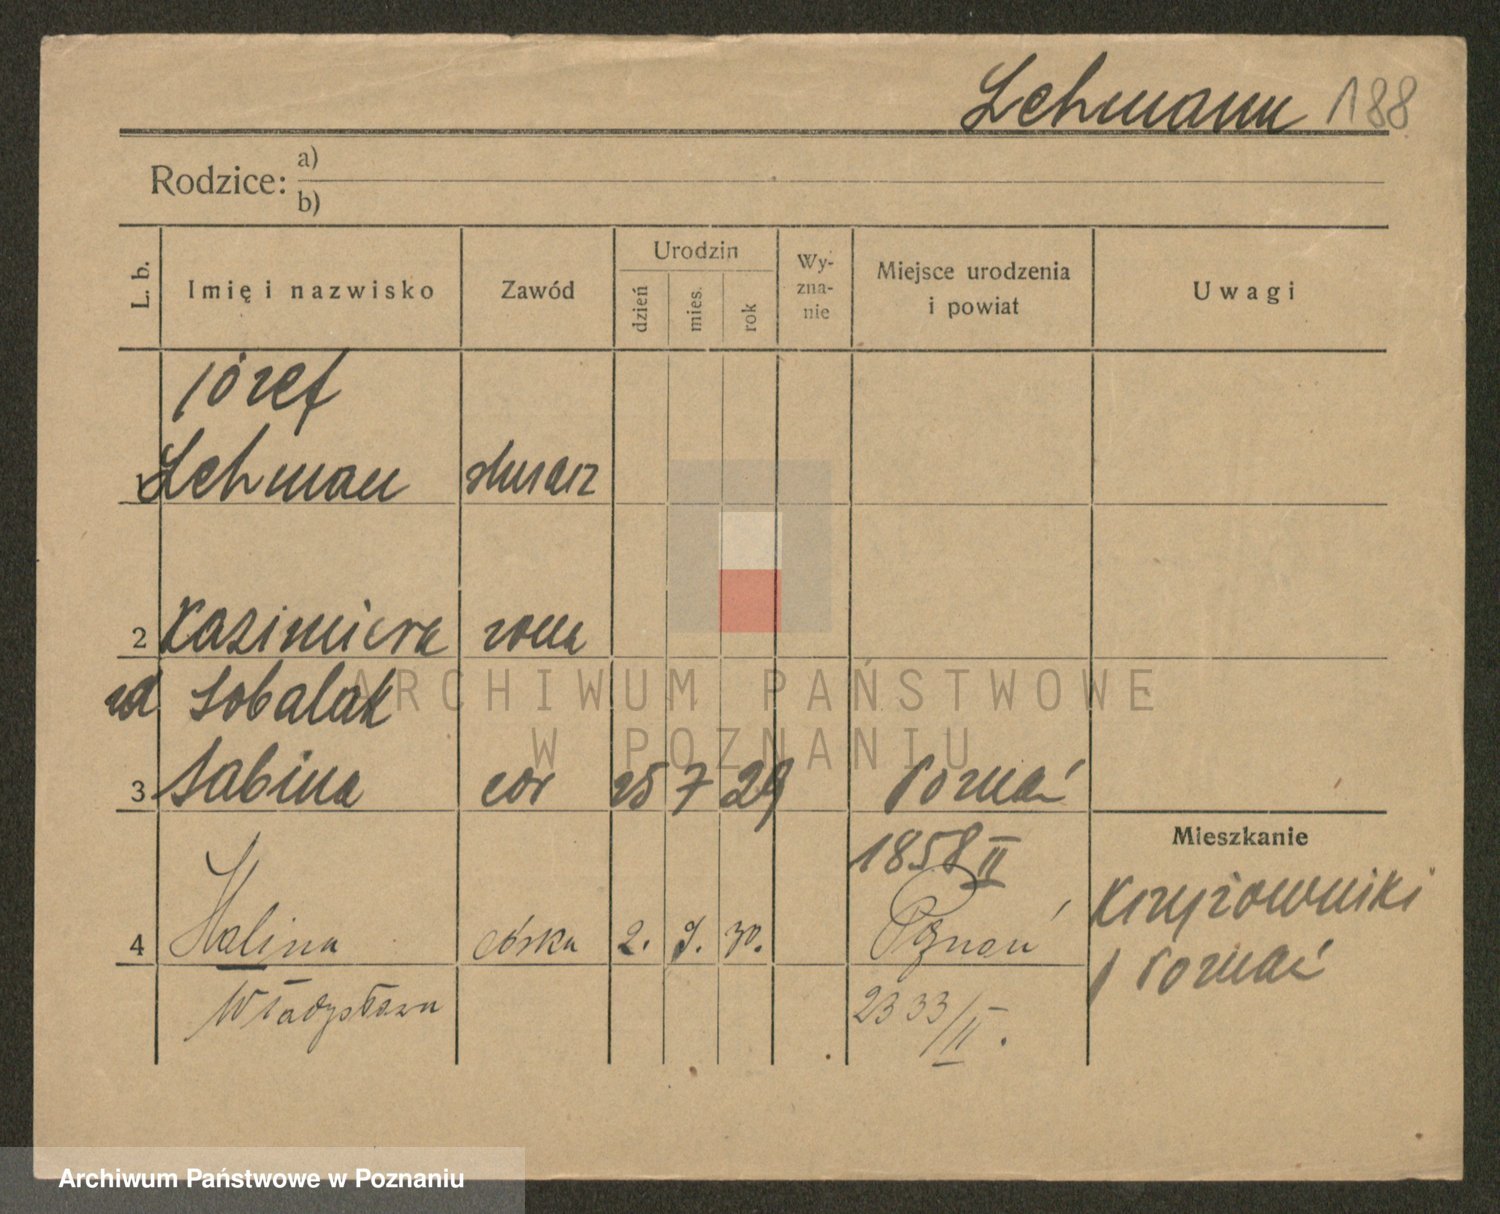 Lehmann 188
Rodzice: a)
b)
L. b.
Imię i nazwisko
Zawód
Urodzin
dzień
mies.
rok
Wy-
zna-
nie
Miejsce urodzenia
i powiat
Uwagi
Józef
1 Lehman ślusarz
2 Kazimiera żona
zd Sobalak
3 Sabina cór 25 7 29 Poznań
1858 II
Mieszkanie
Krzyżowniki
p Poznań
4 Halina córka 2. 9. 30. Poznań
Władysława 2333/II.
ARCHIWUM PAŃSTWOWE
W POZNANIU
Archiwum Państwowe w Poznaniu